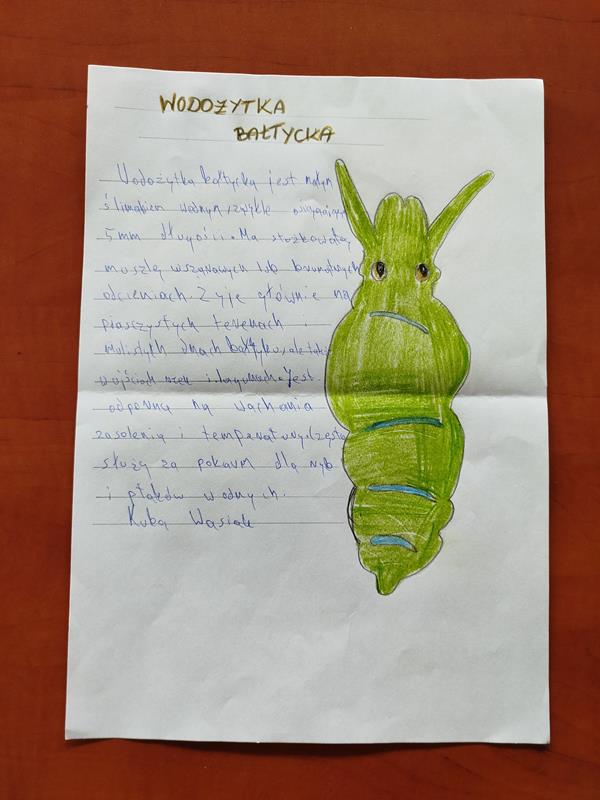 WODOŻYTKA
BAŁTYCKA
Wodożytka bałtycka jest małym
ślimakiem wodnym, zwykle osiągającym
5mm długości. Ma stożkowatą
muszlę w szarawych lub brunatnych
odcieniach. Żyje głównie na
piaszystych terenach i
mulistych dnach Bałtyku, ale także
w ujściach rzek i lagunach. Jest
odporna na wachania
zasolenia i temperatury. Często
służą za pokarm dla ryb
i ptaków wodnych.
Kuba Wasiak